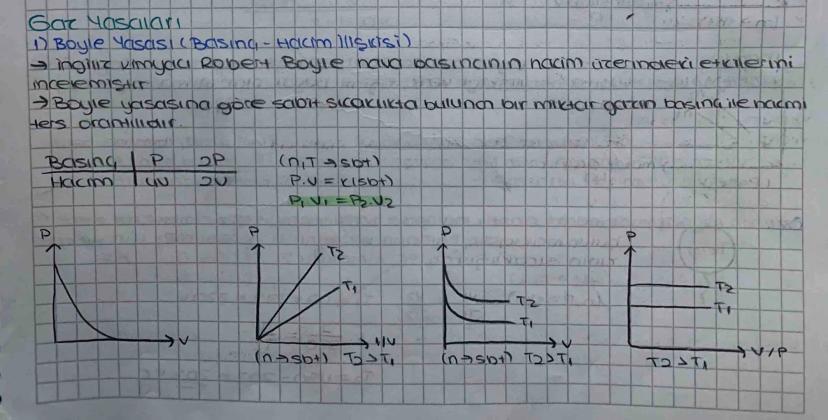 Gaz Yasaları
1) Boyle Yasası (Basınç - Hacim İlişkisi)
→ ingiliz kimyacı Robert Boyle hava basıncının hacim üzerindeki etkilerini
incelemiştir
→ Boyle yasasına göre sabit sıcaklıkta bulunan bir miktar gazın basıncı ile hacmi
ters orantılıdır.
Basınç | P 2P (n,T → sbt)
Hacim | 4V 2V P.V = k(sbt)
P₁V₁ = P₂.V₂
P P P P
T₂ T₂
T₁ T₂ T₁
T₁
V 1/V V V/P
(n → sbt) T₂>T₁ (n → sbt) T₂>T₁ T₂>T₁